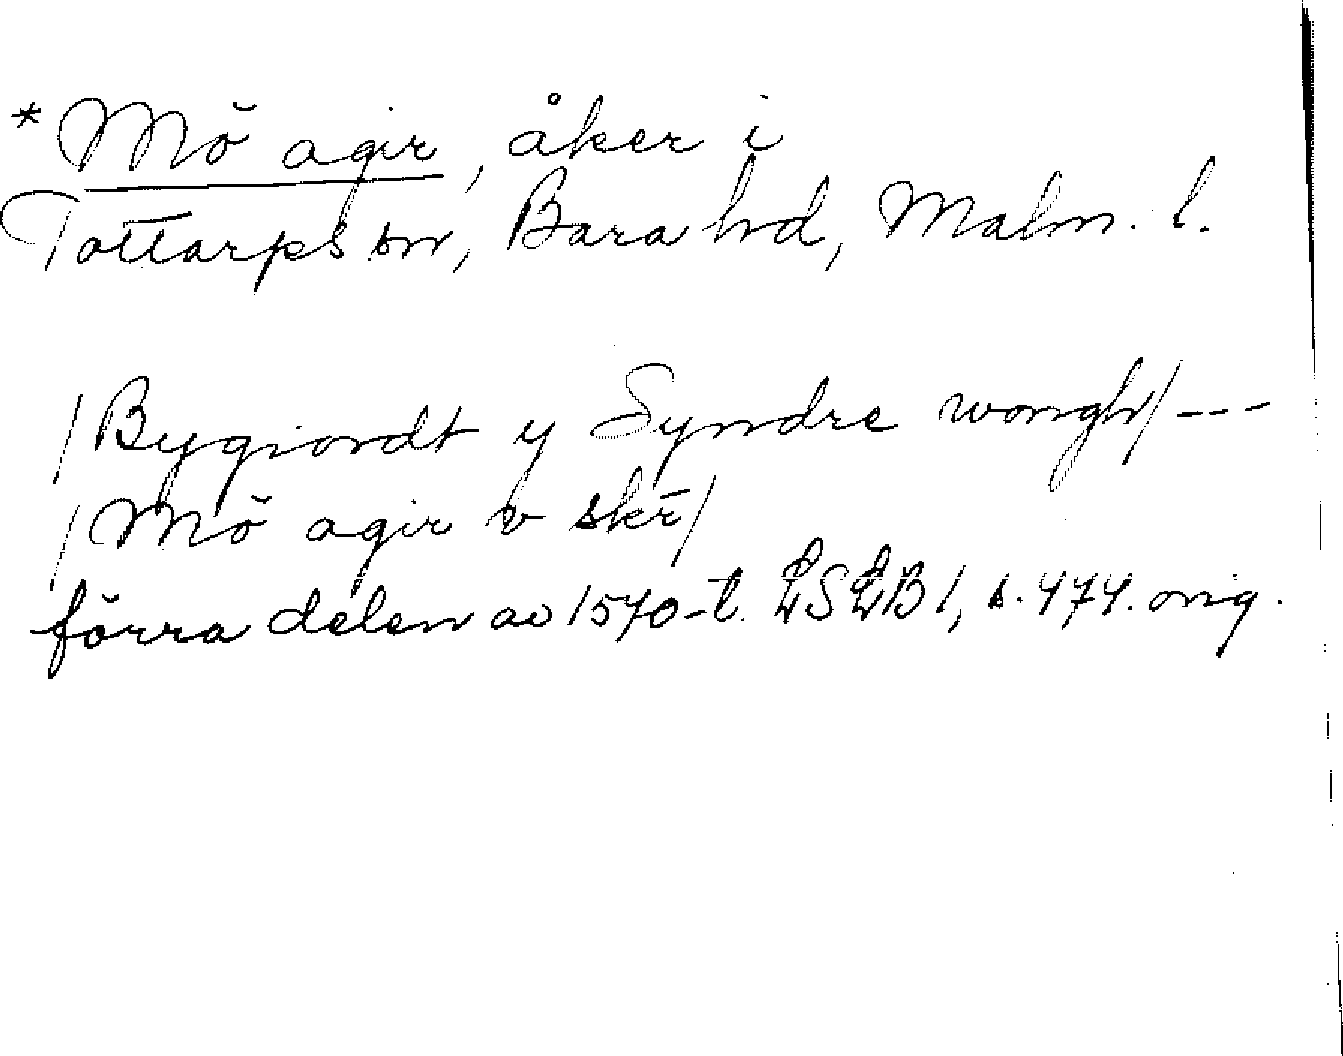 *Mö agir, åker i
Tottarps sn, Bara hd, Malm. l.
/Bygiordt y Syndre wongh/---
/Mö agir v skr̄/
förra delen av 1570-t. LSLB 1, s. 474. orig.